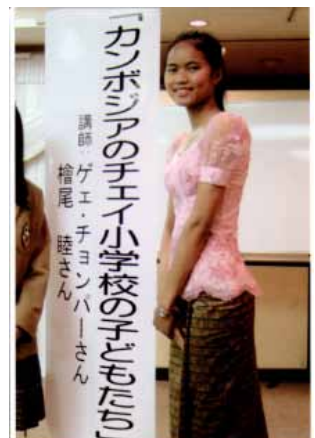 「カンボジアのチェイ小学校の子どもたち」
講師：ゲェ・チョンパーさん
檜尾　睦さん